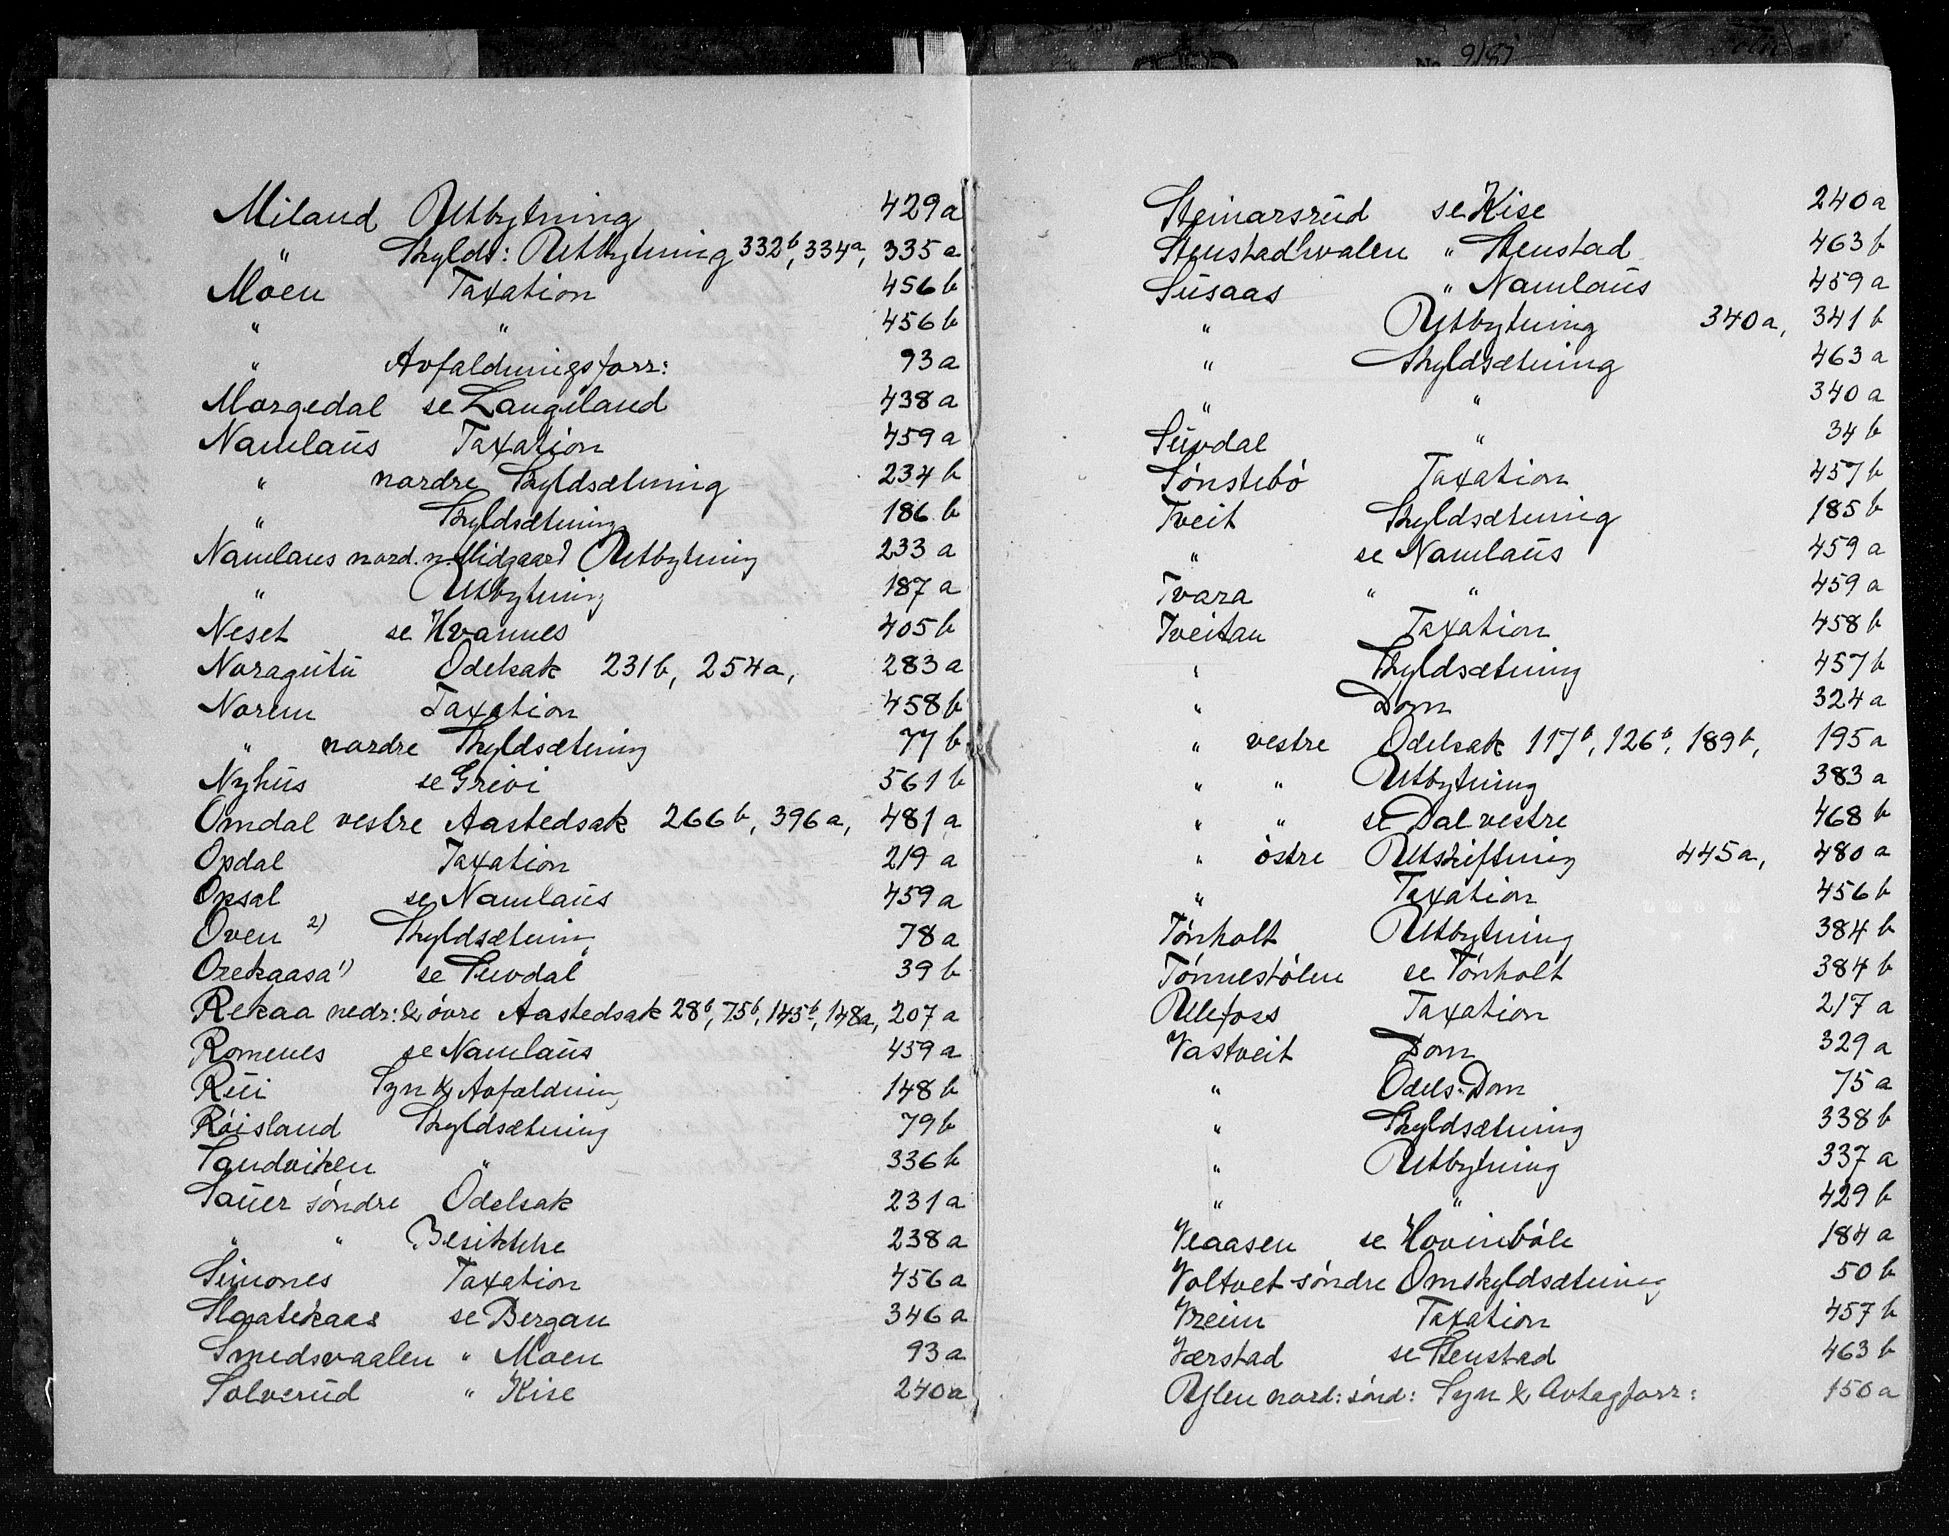 No 9151
Miland Utbytning 429a
" Skylds: Utbytning 332b, 334a, 335a
Moen Taxation 456b
" " 456b
" Avfaldningsforr: 93a
Morgedal se Langeland 438a
Namlaus Taxation 459a
" nordre Skyldsætning 234b
" Skyldsætning 186b
Namlaus nord. m Midgaard Utbytning 233a
" Utbytning 187a
Neset se Kvannes 405b
Noragutu Odelsak 231b, 254a, 283a
Norem Taxation 458b
" nordre Skyldsætning 77b
Nyhus se Grivi 561b
Omdal vestre Aastedsak 266b, 396a, 481a
Opdal Taxation 219a
Opsal se Namlaus 459a
Oven 2) Skyldsætning 78a
Orekaasa 1) se Suvdal 39b
Rekaa nedr: & övre Aastedsak 28b, 75b, 145b, 148a, 207a
Romenes se Namlaus 459a
Rui Syn & Avfaldning 148b
Röisland Skyldsætning 79b
Sandviken " 336b
Sauer söndre Odelsak 231a
" " Besiktkse 238a
Simones Taxation 456a
Slaatekaas se Bergan 346a
Smedsvaalen " Moen 93a
Solverud " Kise 240a
Steinarsrud se Kise 240a
Stenstadhvalen " Stenstad 463b
Susaas " Namlaus 459a
" Utbytning 340a, 341b
" Skyldsætning 463a
" " 340a
Suvdal " 34b
Sönstebö Taxation 457b
Tveit Skyldsætning 185b
" se Namlaus 459a
Tvara " " 459a
Tveitan Taxation 458b
" Skyldsætning 457b
" Dom 324a
" vestre Odelsak 117b, 126b, 189b, 195a
" " Utbytning 383a
" " se Dal vestre 468b
" östre Utskiftning 445a, 480a
" Taxation 456b
Tönholt Utbytning 384b
Tönnestölen se Tönholt 384b
Ulefoss Taxation 217a
Vastveit Dom 329a
" Odels: Dom 75a
" Skyldsætning 338b
" Utbytning 337a
" " 429b
Veaasen se Hovinböle 184a
Voltvet söndre Omskyldsætning 50b
Vreim Taxation 457b
Værstad se Stenstad 463b
Uflen nord: sönd: Syn & Avtagforr: 150a